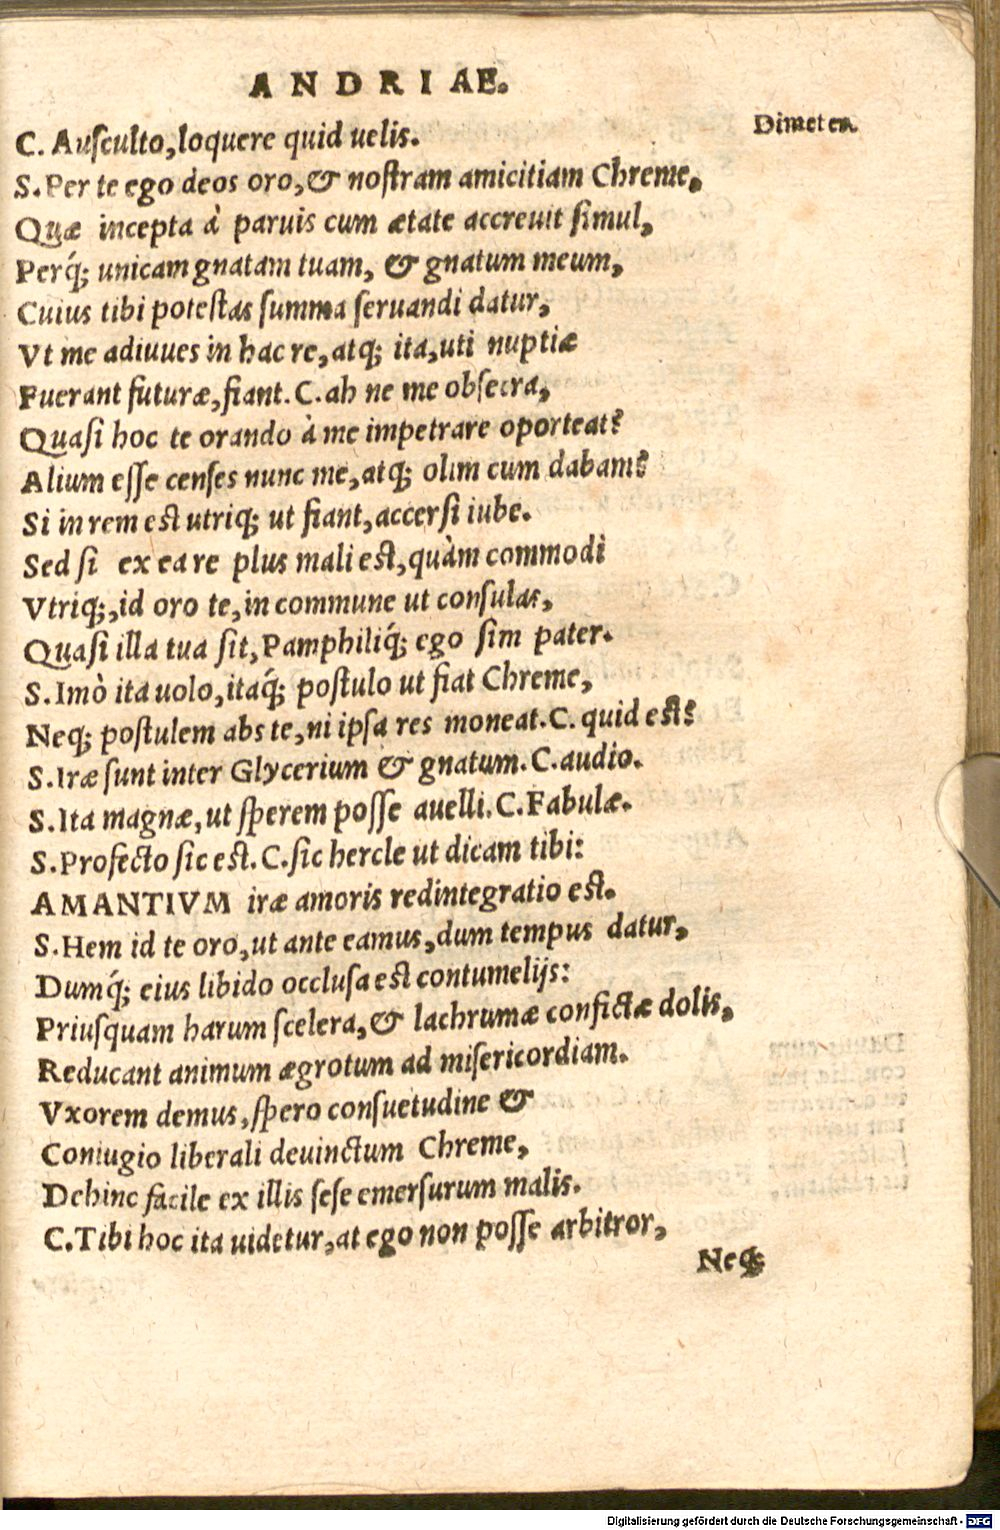 ANDRIAE.
C. Ausculto, loquere quid uelis.
Dimeter.
S. Per te ego deos oro, & nostram amicitiam Chreme,
Quæ incepta à paruis cum ætate accreuit simul,
Perq́; unicam gnatam tuam, & gnatum meum,
Cuius tibi potestas summa seruandi datur,
Vt me adiuues in hac re, atq; ita, uti nuptiæ
Fuerant futuræ, fiant. C. ah ne me obsecra,
Quasi hoc te orando à me impetrare oporteat?
Alium esse censes nunc me, atq; olim cum dabam?
Si in rem est utriq; ut fiant, accersi iube.
Sed si ex ea re plus mali est, quàm commodi
Vtriq;, id oro te, in commune ut consulas,
Quasi illa tua sit, Pamphiliq́; ego sim pater.
S. Imò ita uolo, itaq́; postulo ut fiat Chreme,
Neq; postulem abs te, ni ipsa res moneat. C. quid est?
S. Iræ sunt inter Glycerium & gnatum. C. audio.
S. Ita magnæ, ut sperem posse auelli. C. Fabulæ.
S. Profecto sic est. C. sic hercle ut dicam tibi:
AMANTIVM iræ amoris redintegratio est.
S. Hem id te oro, ut ante eamus, dum tempus datur,
Dumq́; eius libido occlusa est contumelijs:
Priusquam harum scelera, & lachrumæ confictæ dolis,
Reducant animum ægrotum ad misericordiam.
Vxorem demus, spero consuetudine &
Coniugio liberali deuinctum Chreme,
Dehinc facile ex illis sese emersurum malis.
C. Tibi hoc ita uidetur, at ego non posse arbitror,
Neq;
Digitalisierung gefördert durch die Deutsche Forschungsgemeinschaft - DFG